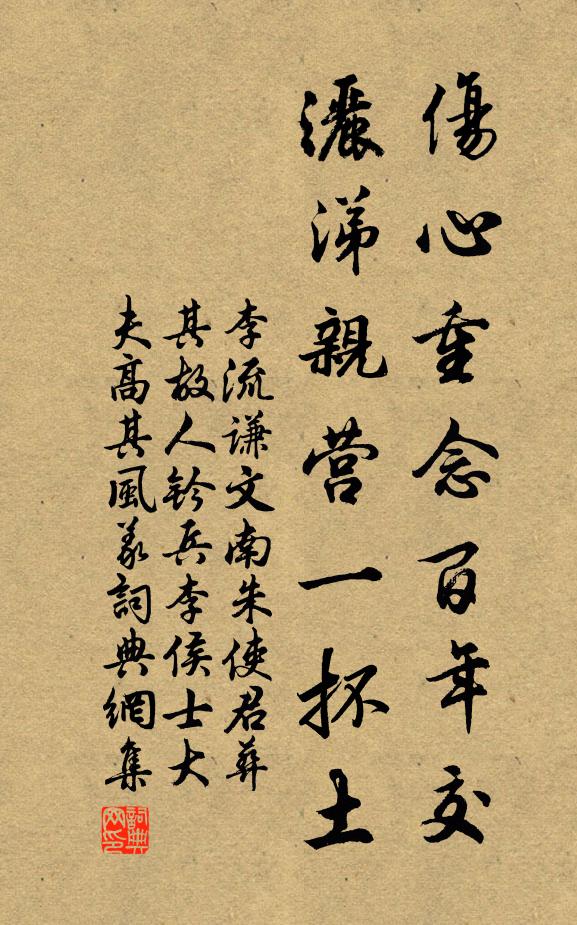 傷心重念百年交
灑涕親營一抔土
李流謙文南朱使君葬
其故人鈐兵李侯士大
夫高其風義詞典網集
詞典网印